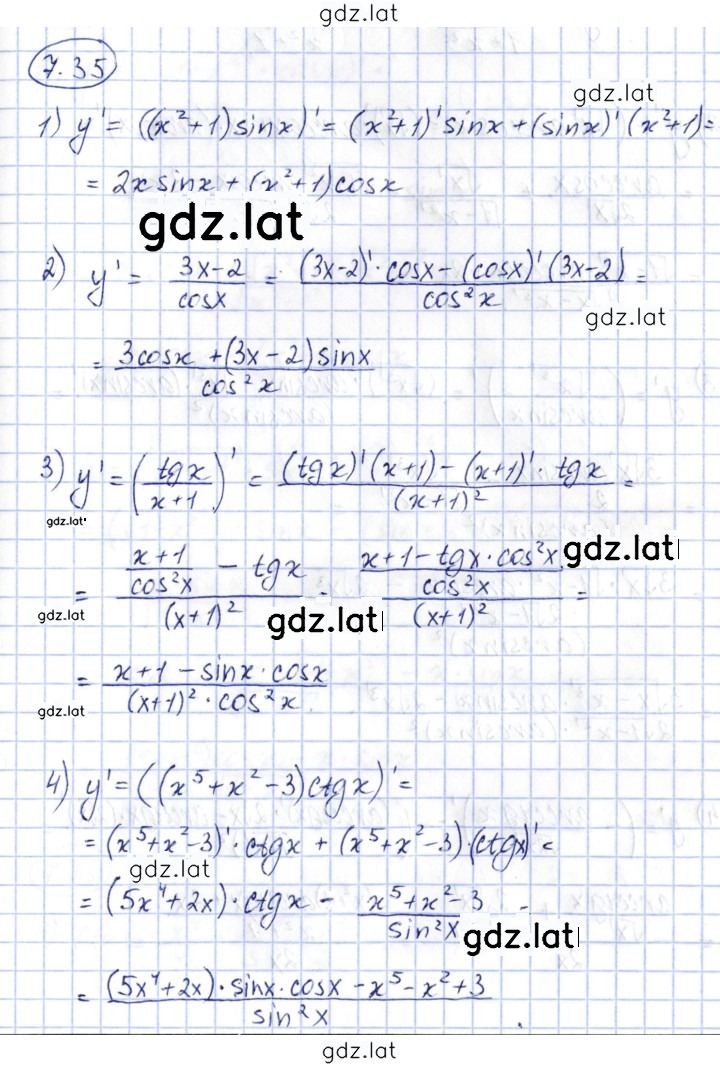 gdz.lat
7.35
gdz.lat
1) y' = ((x²+1)sinx)' = (x²+1)'sinx + (sinx)'(x²+1) =
= 2x sinx + (x²+1)cosx
gdz.lat
2) y' = 3x-2/cosx = (3x-2)'·cosx - (cosx)'(3x-2)/cos²x =
gdz.lat
= 3cosx + (3x-2)sinx/cos²x
3) y' = (tgx/x+1)' = (tgx)'(x+1) - (x+1)'·tgx/(x+1)² =
gdz.lat
= x+1/cos²x - tgx/(x+1)² = x+1-tgx·cos²x/cos²x/(x+1)² =
gdz.lat
gdz.lat
gdz.lat
= x+1-sinx·cosx/(x+1)²·cos²x
gdz.lat
4) y' = ((x⁵+x²-3)ctgx)' =
= (x⁵+x²-3)'·ctgx + (x⁵+x²-3)·(ctgx)' =
gdz.lat
= (5x⁴+2x)·ctgx - x⁵+x²-3/sin²x =
gdz.lat
= (5x⁴+2x)·sinx·cosx - x⁵ - x² + 3/sin²x
gdz.lat